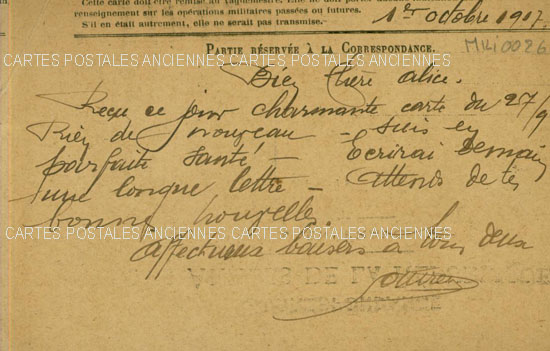 Cette carte doit être remise au vaguemestre. Elle ne doit porter aucun
renseignement sur les opérations militaires passées ou futures.
S'il en était autrement, elle ne serait pas transmise.
1er octobre 1917.
PARTIE RÉSERVÉE À LA CORRESPONDANCE.
MILI0026
CARTES POSTALES ANCIENNES CARTES POSTALES ANCIENNES CARTES POSTALES ANCIENNES
Bien chère Alice.
Reçu ce jour charmante carte du 27/9
Rien de nouveau - suis en
parfaite santé - Ecrirai demain
une longue lettre - Attends de tes
bonnes nouvelles.
CARTES POSTALES ANCIENNES CARTES POSTALES ANCIENNES CARTES POSTALES ANCIENNES
Affectueux baisers à tous deux
DE LA